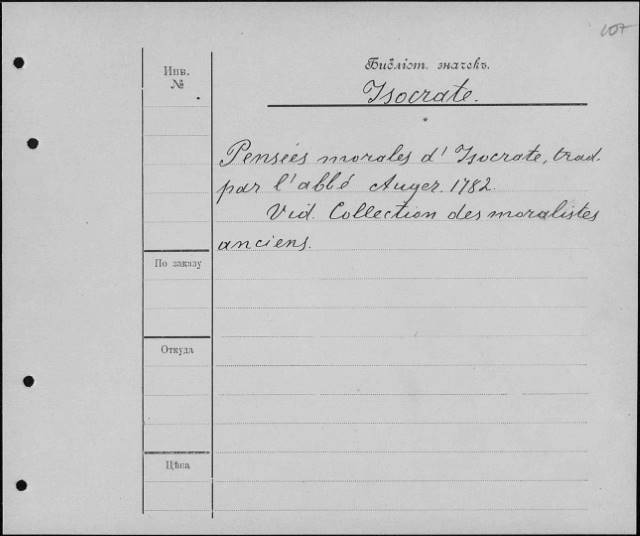 107
Инв.
№
Библіот. значекъ.
Isocrate.
Pensées morales d'Isocrate, trad.
par l'abbé Auger. 1782.
Vid. Collection des moralistes
anciens.
По заказу
Откуда
Цѣна